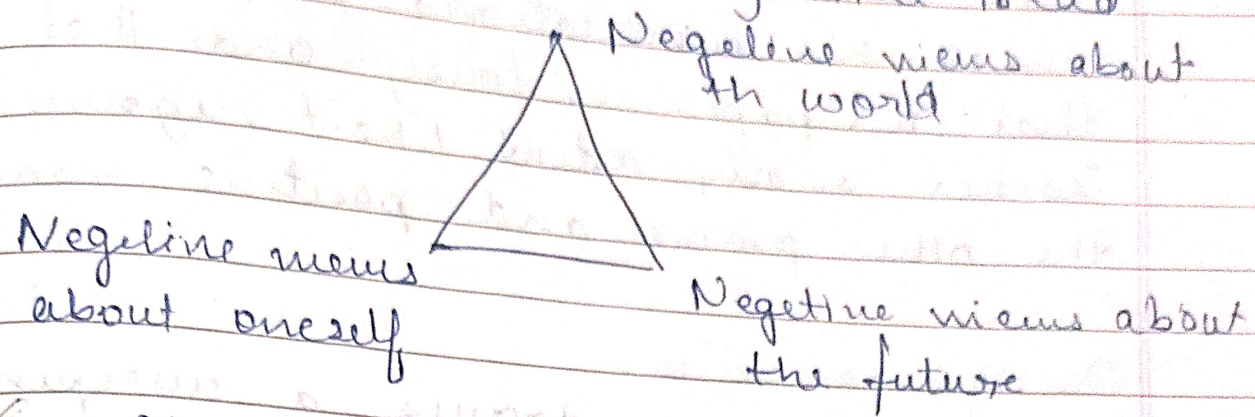 Negetive views about
th world
Negetive views
about oneself
Negetive views about
the future